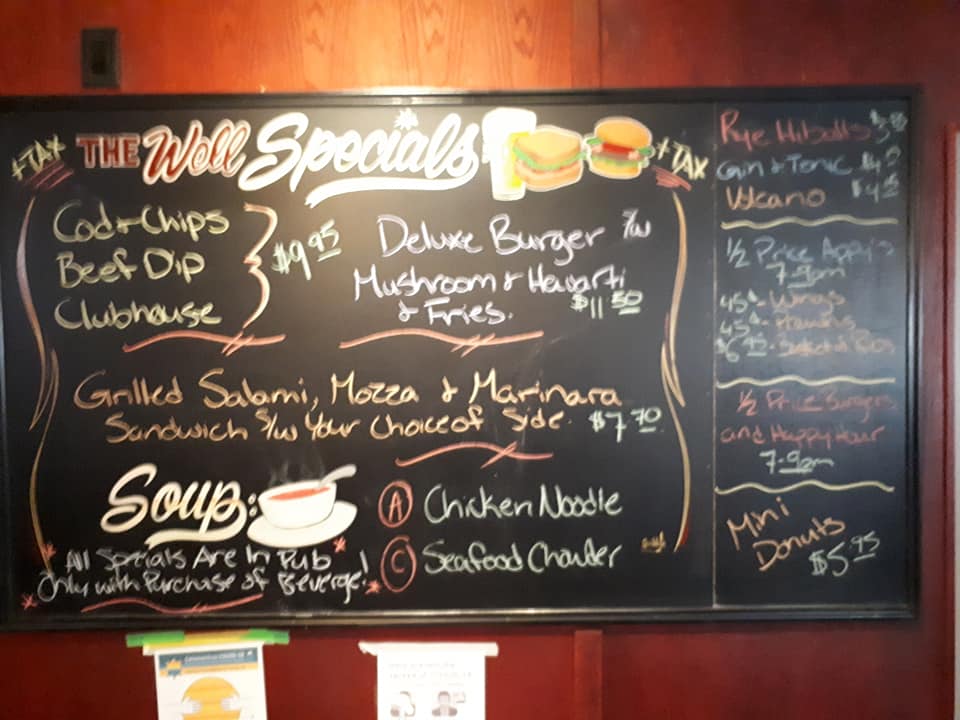 +TAX THE Well Specials +TAX
Cod + Chips
Beef Dip
Clubhouse
$9.95
Deluxe Burger S/w
Mushroom + Havarti
+ Fries. $11.50
Grilled Salami, Mozza + Marinara
Sandwich S/w Your Choice of Side. $7.70
Soup:
A Chicken Noodle
C Seafood Chouder
All Specials Are In Pub
Only with Purchase of Beverge!
Rye Hiballs
Gin + Tonic
Volcano
1/2 Price Appys
7-9pm
45¢- Wings
45¢-
1/2 Price Burgers
and Happy Hour
7-9pm
Mini
Donuts
$5.95